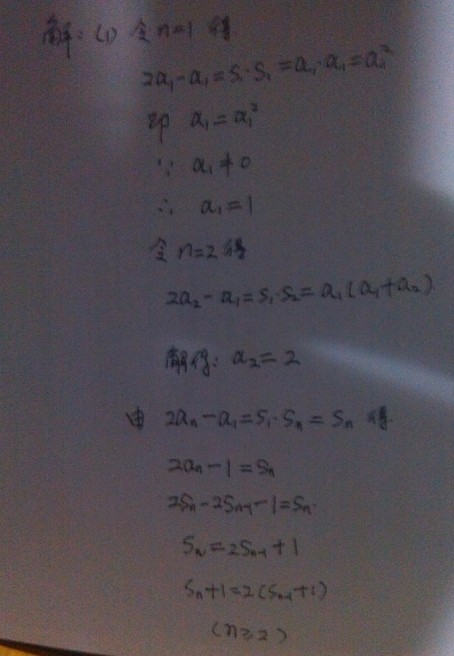 解：(1) 令n=1 得
2a₁-a₁=S₁·S₁=a₁·a₁=a₁²
即 a₁=a₁²
∵ a₁≠0
∴ a₁=1
令n=2得
2a₂-a₁=S₁·S₂=a₁(a₁+a₂)
解得：a₂=2
由 2aₙ-a₁=S₁·Sₙ=Sₙ 得
2aₙ-1=Sₙ
2Sₙ-2Sₙ₋₁-1=Sₙ
Sₙ=2Sₙ₋₁+1
Sₙ+1=2(Sₙ₋₁+1)
(n≥2)